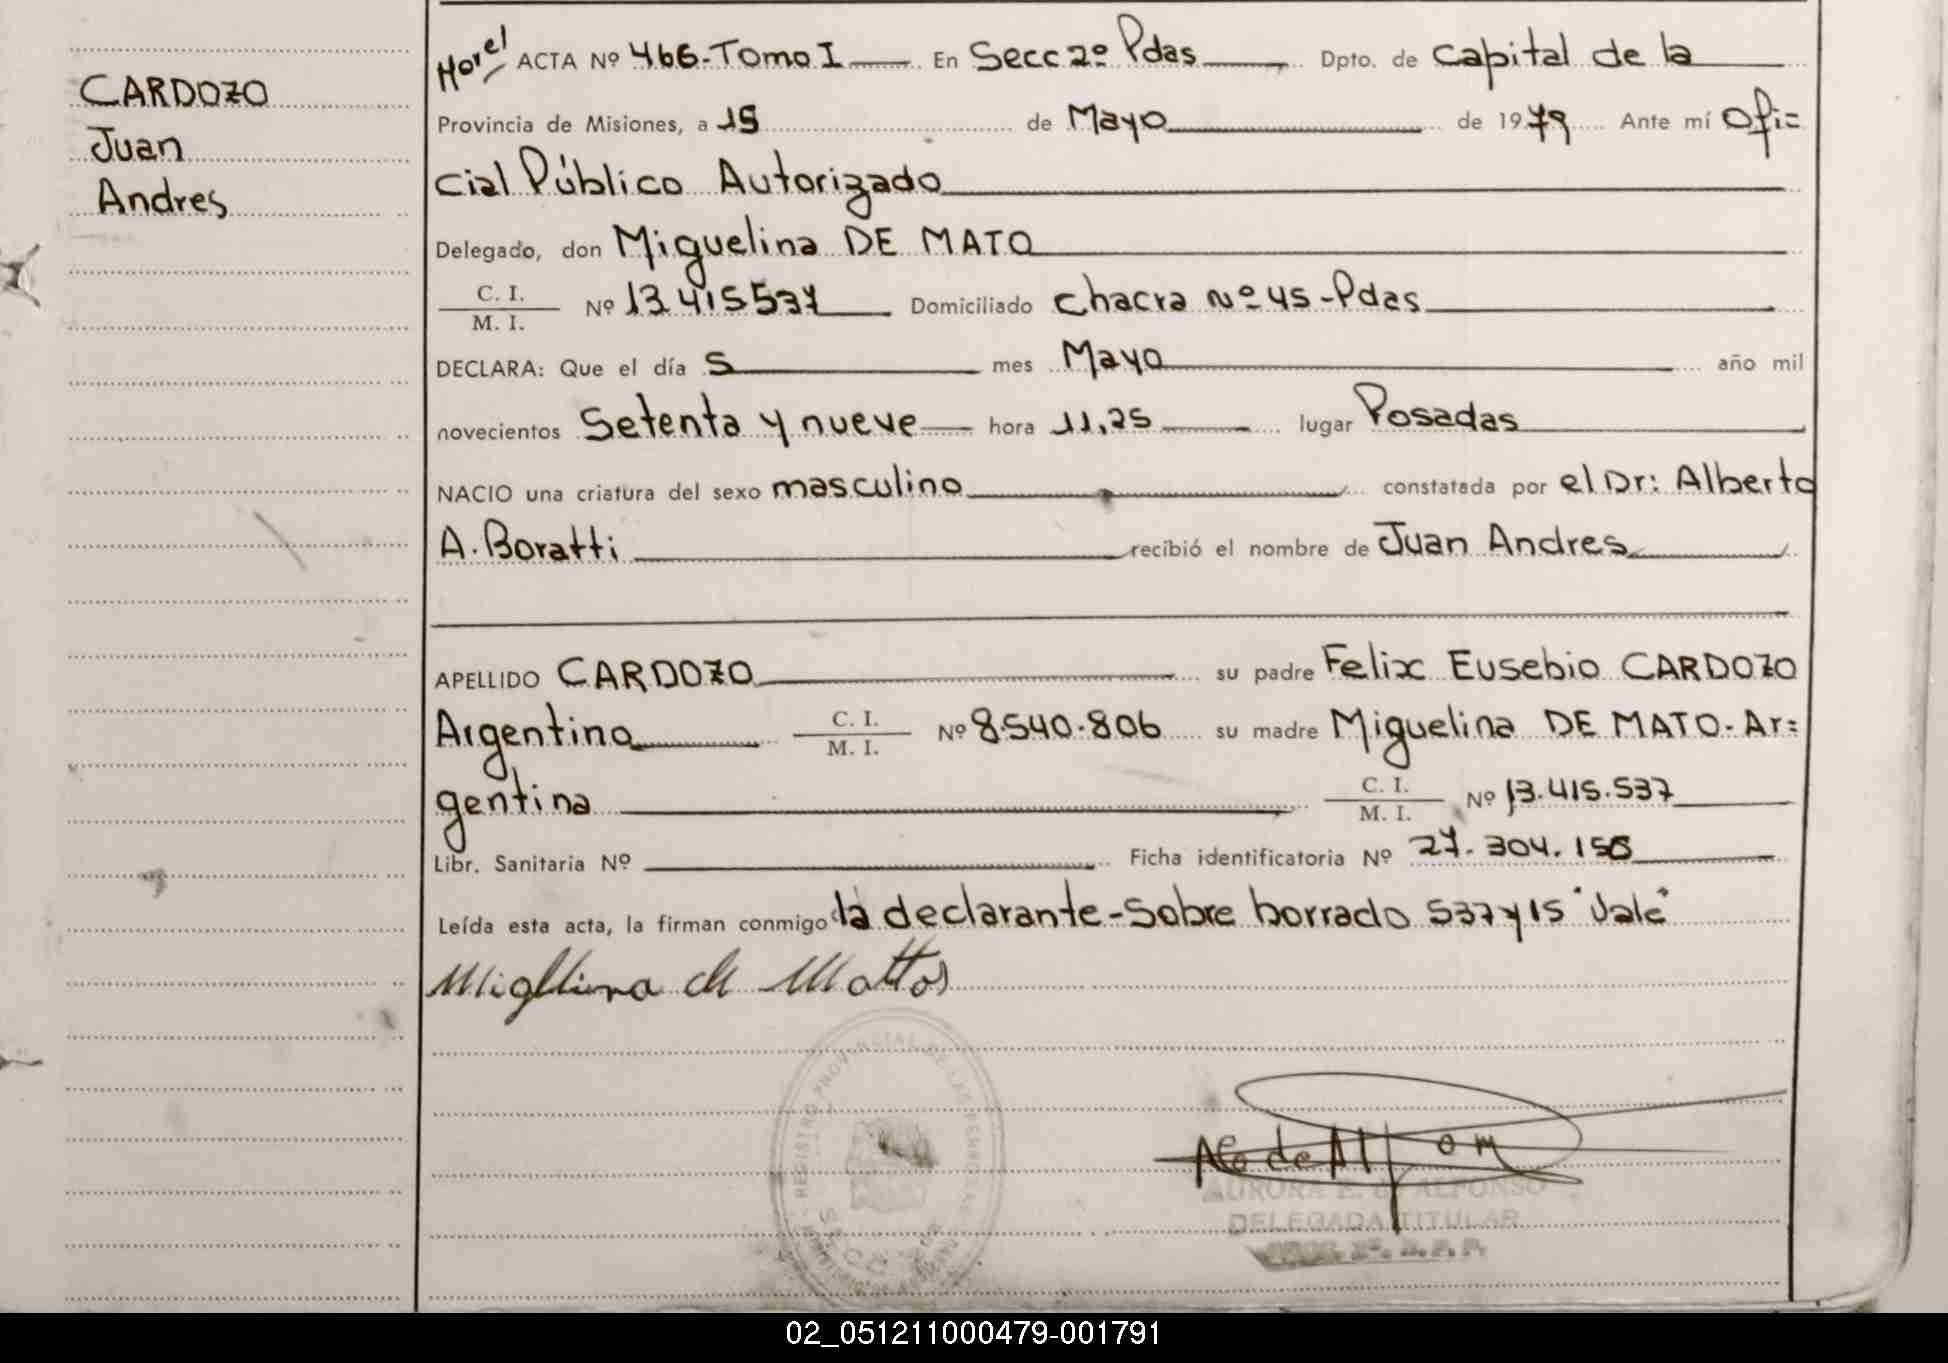 CARDOZO
Juan
Andres
ACTA Nº 466-Tomo I En Secc 2º Pdas Dpto. de Capital de la
Provincia de Misiones, a 15 de Mayo de 1979 Ante mí Ofi=
cial Público Autorizado
Delegado, don Miguelina DE MATO
C. I.
M. I.
Nº 13.415537 Domiciliado Chacra Nº 45-Pdas
DECLARA: Que el día 5 mes Mayo año mil
novecientos Setenta y nueve hora 11,25 lugar Posadas
NACIO una criatura del sexo masculino constatada por el Dr: Alberto
A. Boratti recibió el nombre de Juan Andres
APELLIDO CARDOZO su padre Felix Eusebio CARDOZO
Argentino C. I. Nº 8.540.806 su madre Miguelina DE MATO-Ar=
M. I.
gentina C. I. Nº 13.415.537
M. I.
Libr. Sanitaria Nº Ficha identificatoria Nº 27.304.156
Leída esta acta, la firman conmigo la declarante-Sobre borrado 537 y 15 "Vale"
de Mattos
REGISTRO PROVINCIAL DE LAS PERSONAS
AURORA E. de ALFONSO
DELEGADA TITULAR
02_051211000479-001791